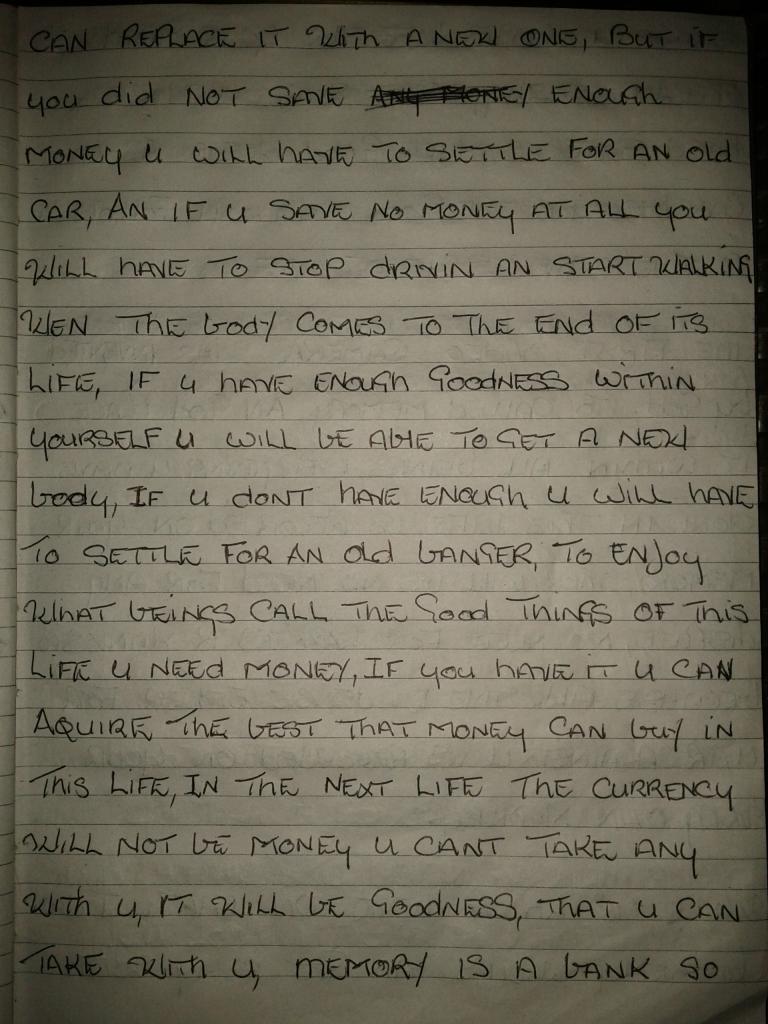 CAN REPLACE IT WITH A NEW ONE, BUT IF
you did NOT SAVE ANY MONEY ENOUGH
MONEY U WILL HAVE TO SETTLE FOR AN OLD
CAR, AN IF U SAVE NO MONEY AT ALL YOU
WILL HAVE TO STOP DRIVIN AN START WALKING
WEN THE BODY COMES TO THE END OF ITS
LIFE, IF U HAVE ENOUGH GOODNESS WITHIN
YOURSELF U WILL BE ABLE TO GET A NEW
body, IF U DONT HAVE ENOUGH U WILL HAVE
TO SETTLE FOR AN OLD BANGER, TO ENJOY
WHAT BEINGS CALL THE GOOD THINGS OF THIS
LIFE U NEED MONEY, IF YOU HAVE IT U CAN
AQUIRE THE BEST THAT MONEY CAN BUY IN
THIS LIFE, IN THE NEXT LIFE THE CURRENCY
WILL NOT BE MONEY U CANT TAKE ANY
WITH U, IT WILL BE GOODNESS, THAT U CAN
TAKE WITH U, MEMORY IS A BANK SO